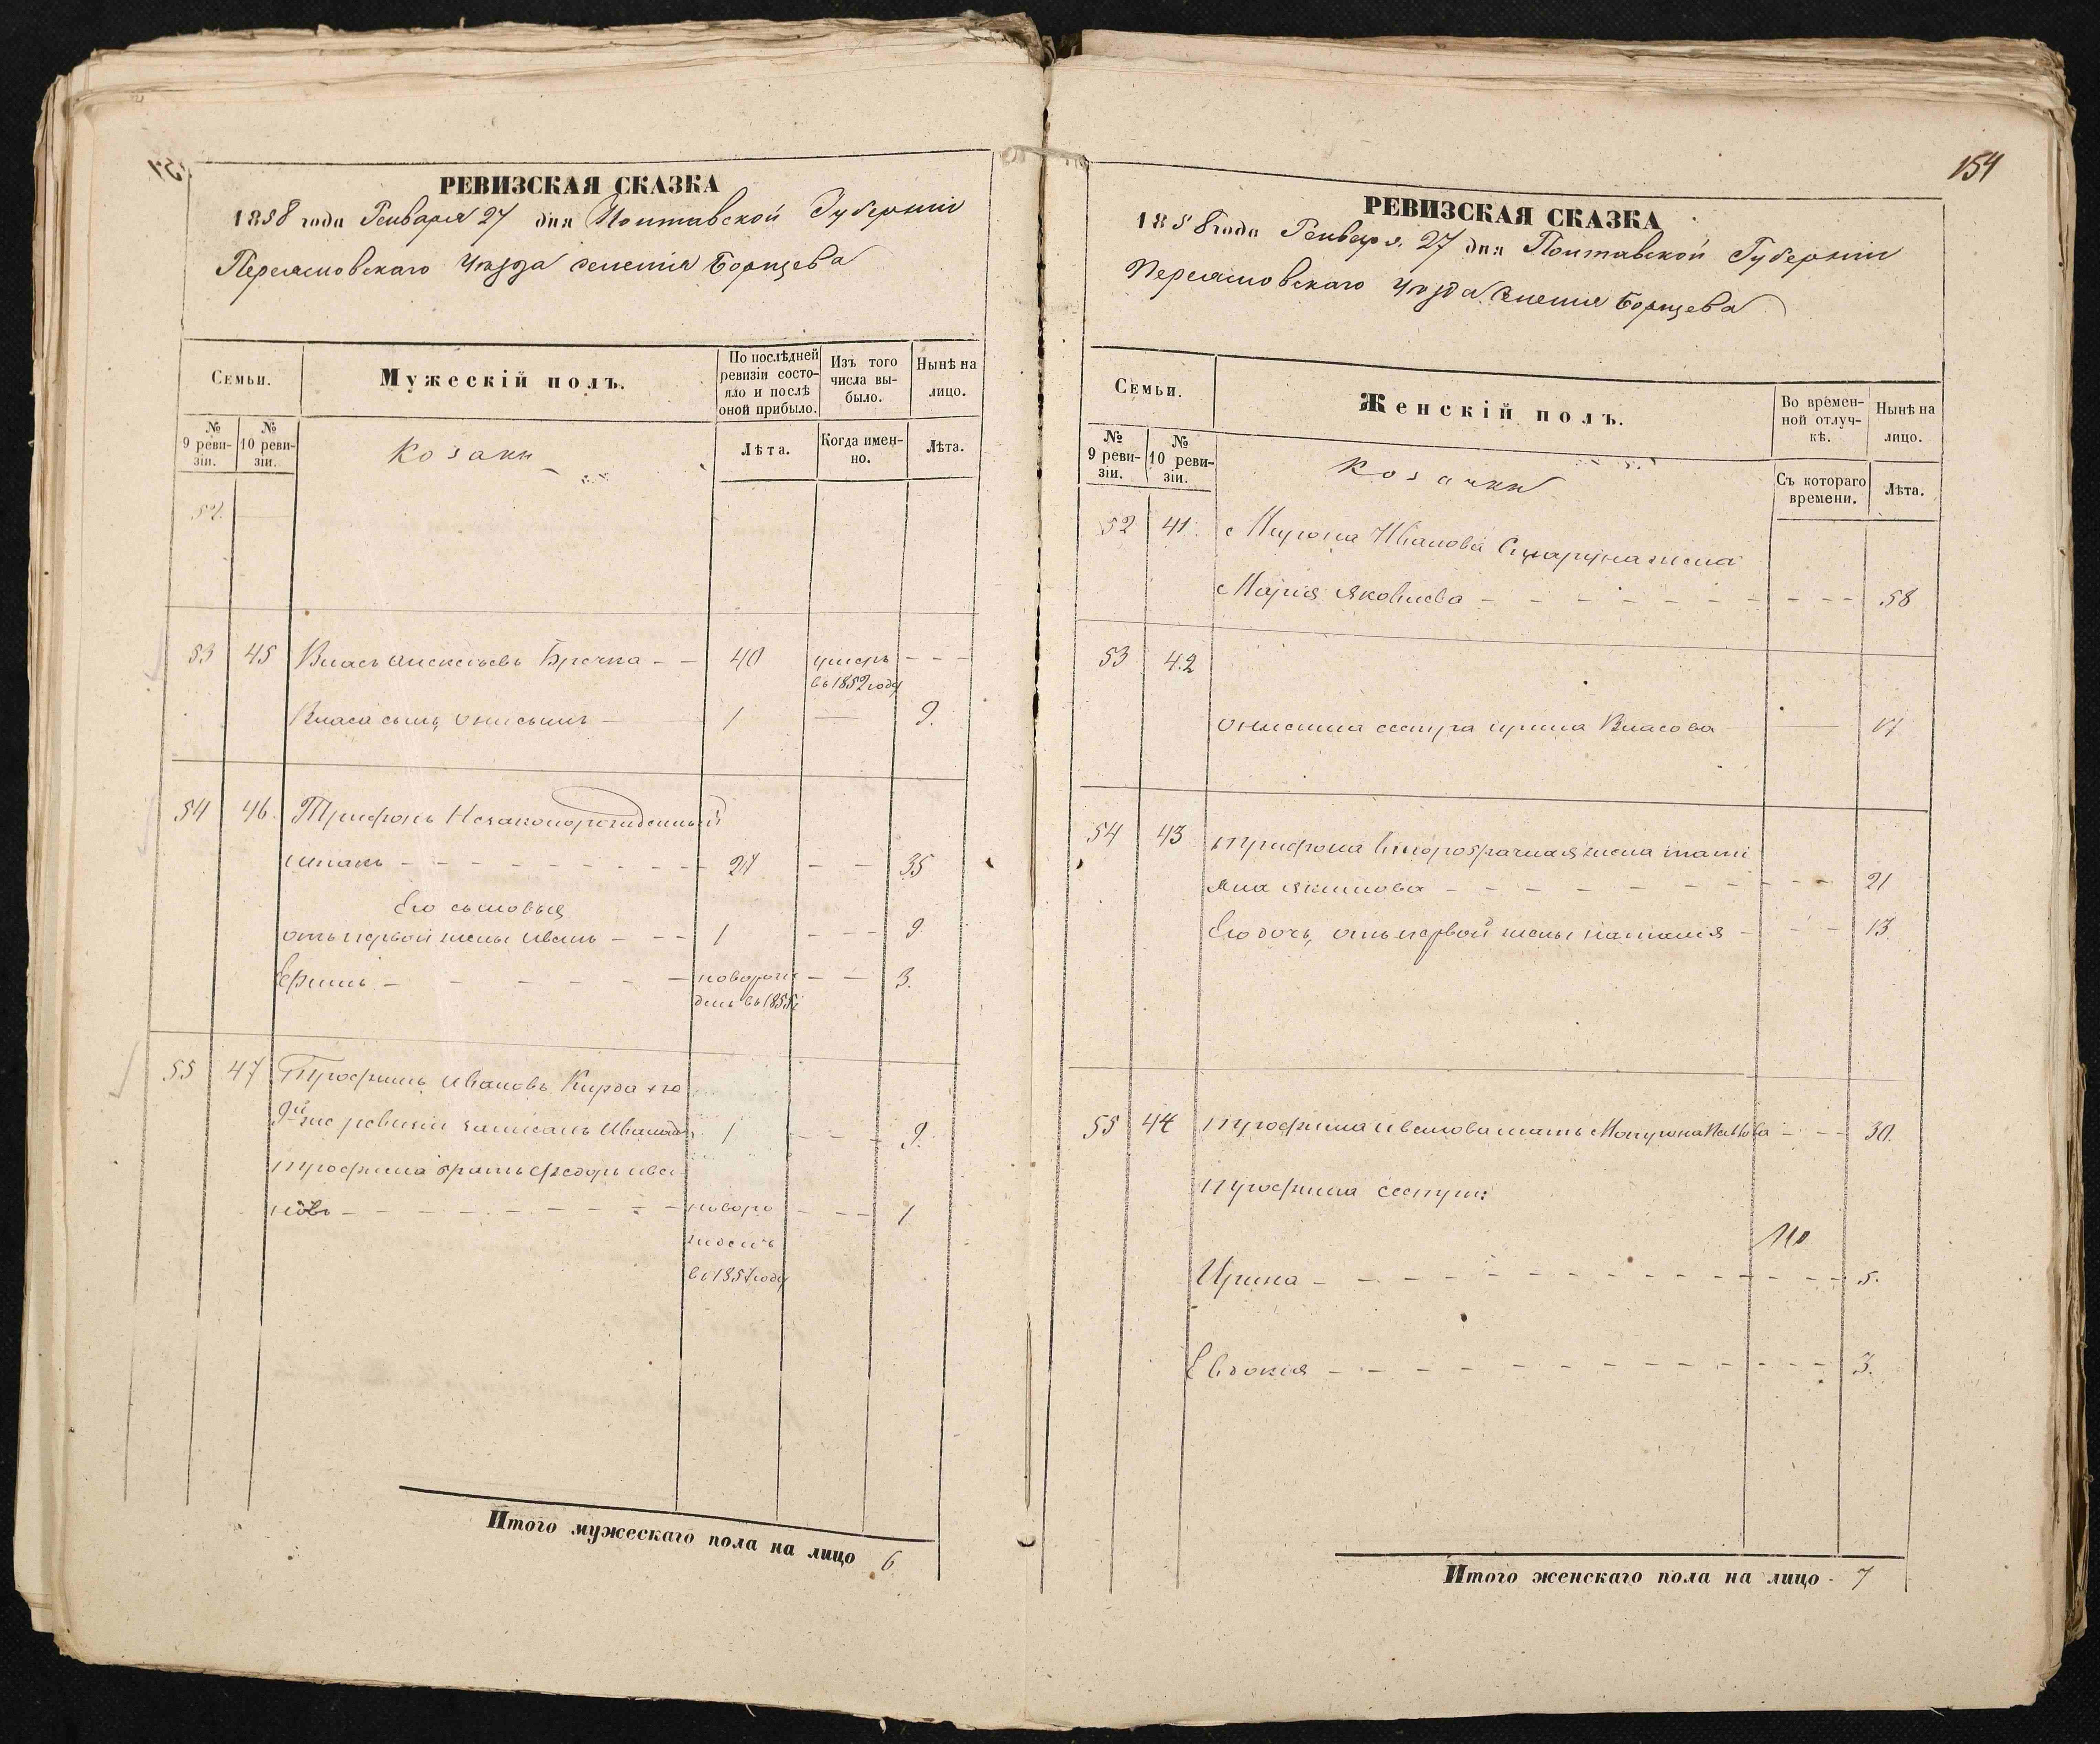 154
РЕВИЗСКАЯ СКАЗКА
1858 года Генваря 27 дня Полтавской Губерніи
Переяславскаго Уѣзда селенія Борщева
Семьи.
Мужескій полъ.
По послѣдней ревизіи состояло и послѣ оной прибыло.
Изъ того числа выбыло.
Нынѣ на лицо.
№ 9 ревизіи.
№ 10 ревизіи.
Козаки
Лѣта.
Когда именно.
Лѣта.
52.
53 45 Власъ Алексѣевъ – – 40 умеръ – – –
въ 1852 году
Власа сынъ Онисимъ 1 — 9.
54 46. Трифонъ Незаконорожденный
– – – – 27 – – 35
Его сыновья
отъ первой жены Иванъ – – – 1 – – – 9
Ефимъ – – – – – новорож – – 3.
денъ въ 1855
55 47 Трофимъ Ивановъ Кирда по
9й ревизіи записанъ 1 – – – 9.
Трофима братъ Федоръ Ива
новъ – – – – – – – новоро – – – 1
жденъ
въ 1857 году
Итого мужескаго пола на лицо 6
РЕВИЗСКАЯ СКАЗКА
1858 года Генваря 27 дня Полтавской Губерніи
Переяславскаго Уѣзда Селенія Борщева
Семьи.
Женскій полъ.
Во временной отлучкѣ.
Нынѣ на лицо.
№ 9 ревизіи.
№ 10 ревизіи.
Козачки
Съ котораго времени.
Лѣта.
52 41. Мирона Иванова жена
Марія Яковлева – – – – – – – – – 58
53 42
Онисима сестра Ирина Власова — 17
54 43 Трифона второбрачная жена Тати
яна Якимова – – – – – – – – – 21
Его дочь, отъ первой жены Наталія – – – 13
55 44 Трофима Иванова мать – – – 30.
Трофима сестры:
Ирина – – – – – – – – – – – 5.
Евдокія – – – – – – – – – – – 3.
Итого женскаго пола на лицо 7